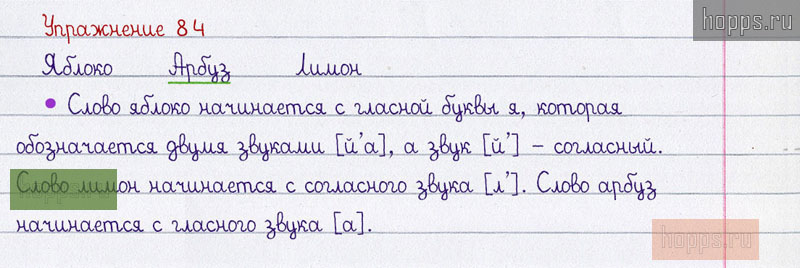 hopps.ru
Упражнение 84
Яблоко Арбуз Лимон
• Слово яблоко начинается с гласной буквы я, которая
обозначается двумя звуками [й'а], а звук [й'] – согласный.
Слово лимон начинается с согласного звука [л']. Слово арбуз
начинается с гласного звука [а].
hopps.ru